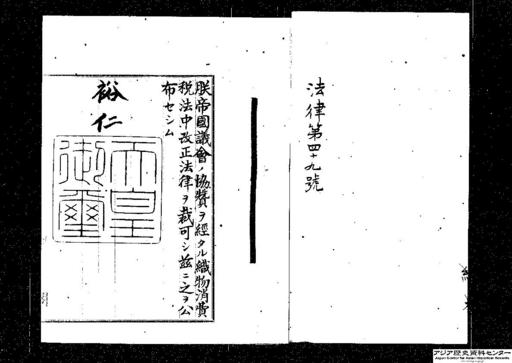 法律第四十九號
朕帝國議會ノ協贊ヲ經タル織物消費
税法中改正法律ヲ裁可シ茲ニ之ヲ公
布セシム
裕仁
天皇
御璽
アジア歴史資料センター
Japan Center for Asian Historical Records